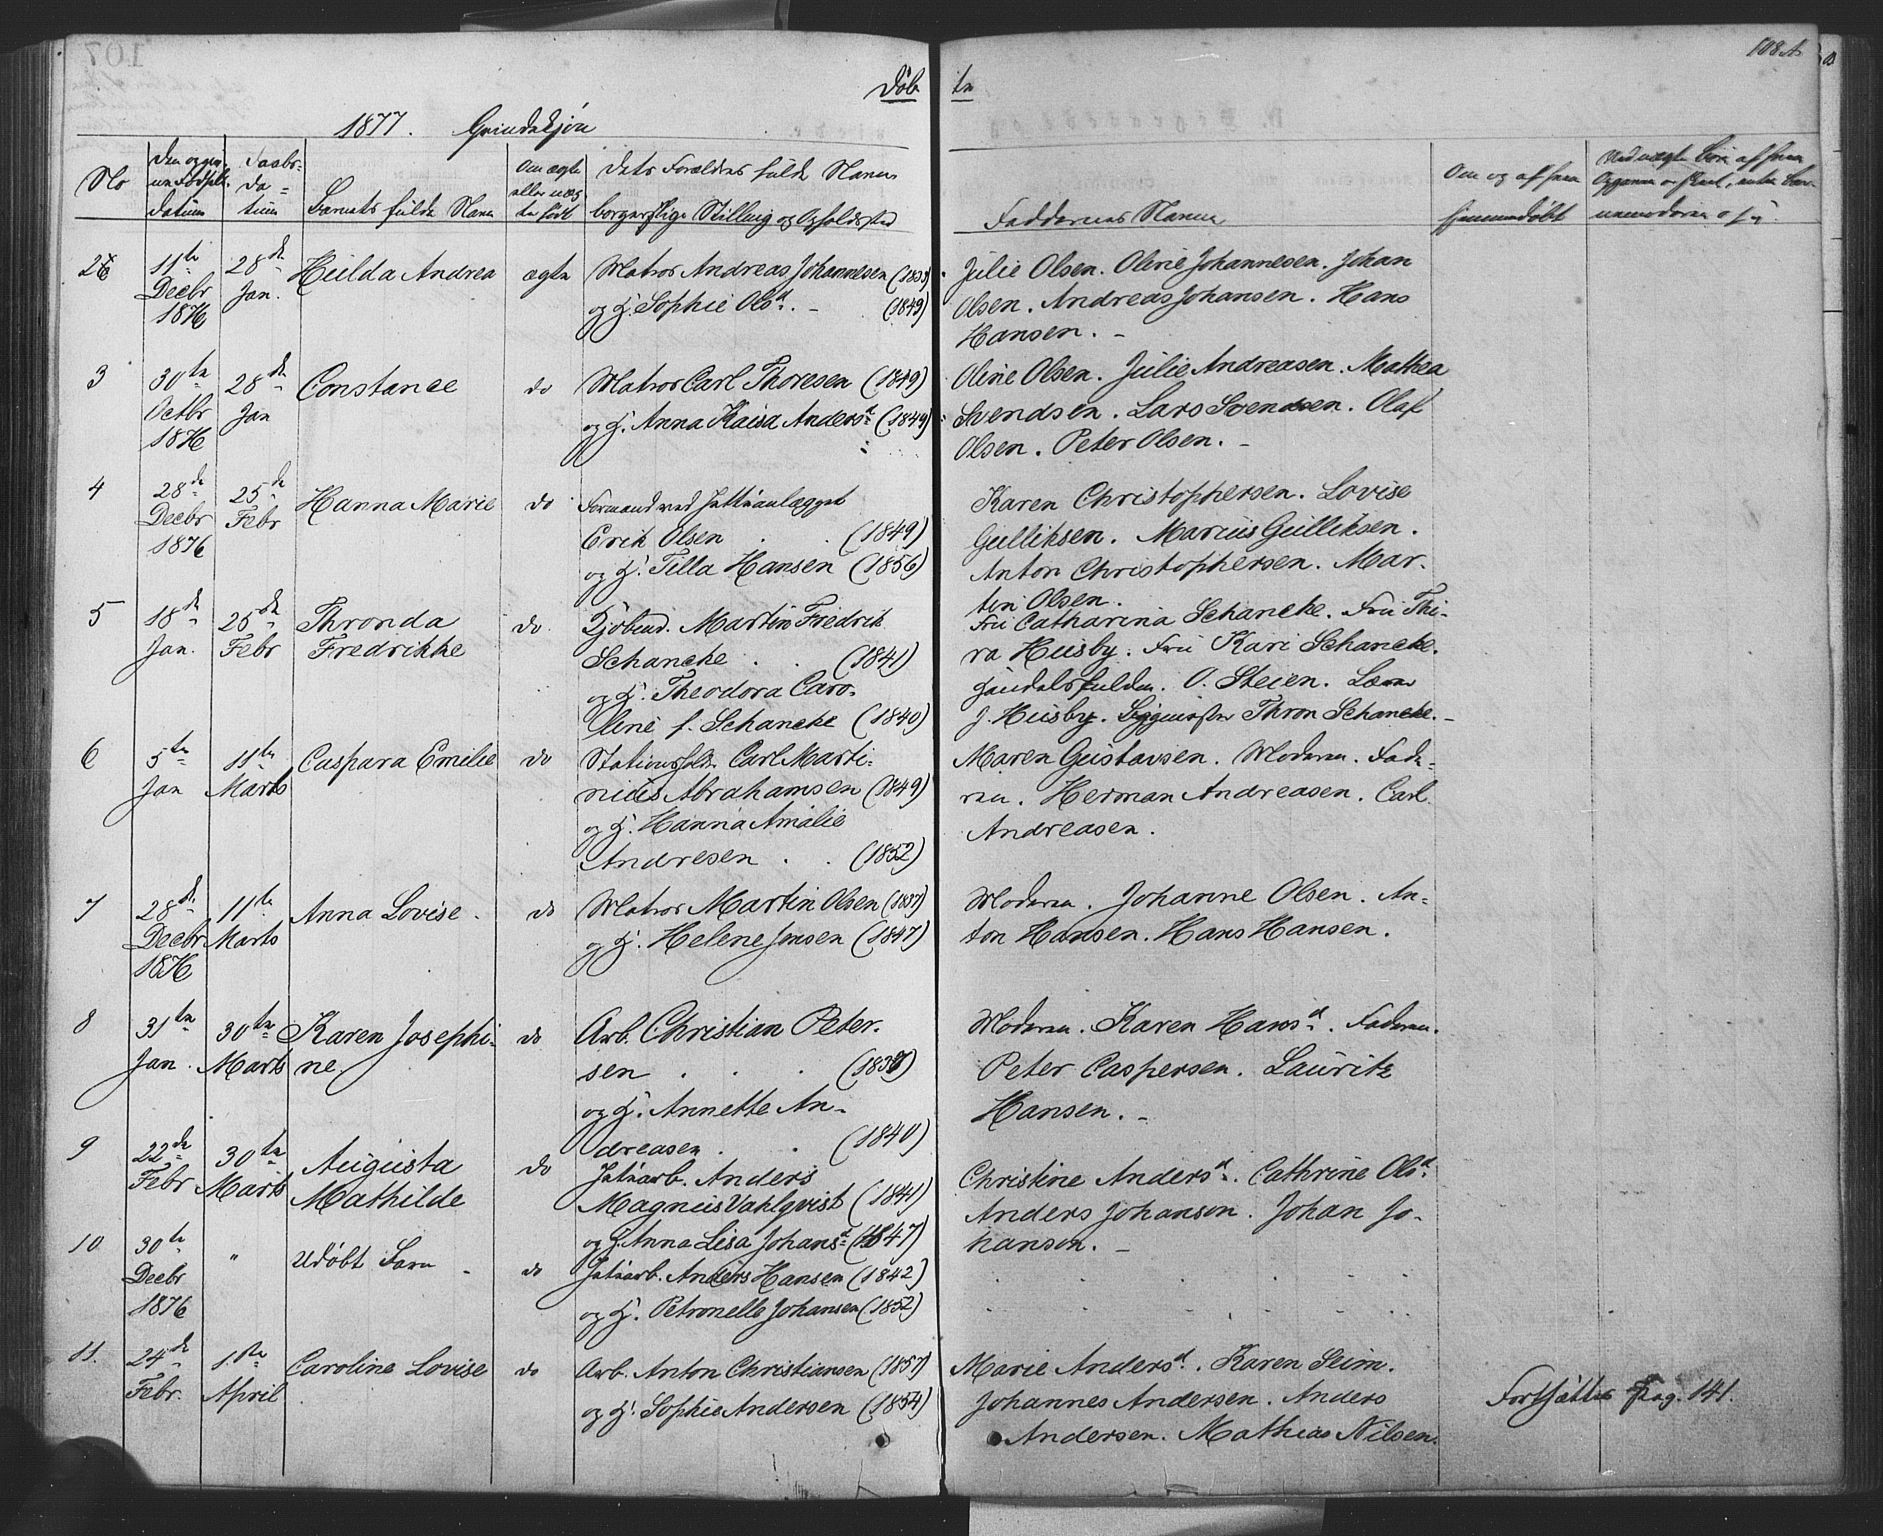 108 A.
Døb te
1877. Qvindekjøn
No
Den og gen Fødsels datum
Daabs-
da=
tum
Barnets fulde Navn
Om ægte
eller uæg
te født
Dets Forældres fulde Navn
borgerlige Stilling og Opholdssted
Faddernes Navne
Om og af hvem
hjemmedøbt
2 11te Decbr 1876 28de Jan. Hulda Andrea ægte
Matros Andreas Johannesen
og H. Sophie Olsd. (1849)
Julie Olsen. Oline Johannesen. Johan
Olsen. Andreas Johansen. Hans
Hansen.
3 30te Octbr 1876 28de Jan Constance do
Matros Carl Thoresen (1849)
og H. Anna Kaisa Andersd (1844)
Oline Olsen. Julie Andreasen. Mathea
Svendsen. Lars Svendsen. Olaf
Olsen. Peter Olsen.
4 28de Decbr 1876 25de Febr Hanna Marie do
Formand ved Jættéanlægget
Erik Olsen (1849)
og H. Tilla Hansen (1856)
Karen Christophersen. Lovise
Gulliksen. Marius Gulliksen.
Anton Christophersen. Mar-
tin Olsen.
5 18de Jan. 25de Febr Thronda
Fredrikke do
Kjøbmd. Martin Fredrik
Schancke (1841)
og H. Theodora Caro-
line f. Schancke (1840)
Fru Catharina Schancke. Fru Thi-
ra Husby. Fru Kari Schancke.
Handelsfuldm. O. Steien. Lærer
J. Husby. Thron Schancke.
6 5te Jan 11te Marts Caspara Emilie do
Stationsholdr Carl Marti-
nius Abrahamsen (1849)
og H. Hanna Amalie
Andresen (1852)
Maren Gustavsen. Moderen. Fade-
ren. Herman Andreasen. Carl
Andreasen.
7 28de Decbr 1876 11te Marts Anna Lovise. do
Matros Martin Olsen (1837)
og H. Helene Jensen (1847)
Moderen. Johanne Olsen. An-
ton Hansen. Hans Hansen.
8 31te Jan. 30te Marts Karen Josephi-
ne. do
Arb. Christian Peter-
sen
og H. Annette An-
dreasen. (1840)
Moderen. Karen Hansd. Faderen.
Peter Caspersen. Lauritz
Hansen.
9 22de Febr 30te Marts Augusta
Mathilde do
Jætéarb. Anders
Magnus Vahlqvist (1841)
og H. Anna Lisa Johansd (1847)
Christine Andersd. Cathrine Olsd.
Anders Johanson. Johan Jo-
hanson.
10 30te Decbr 1876 " Udøbt Barn do
Jætéarb. Anders Hansen (1842)
og H. Petronelle Johansen (1852)
11. 24de Febr. 1ste April Caroline Lovise do
Arb. Anton Christiansen (1857)
og H. Sophie Andersen (1854)
Marie Andersd. Karen Seim.
Johannes Andersen. Anders
Andersen. Mathias Nilsen.
Fortsættes Pag. 141.